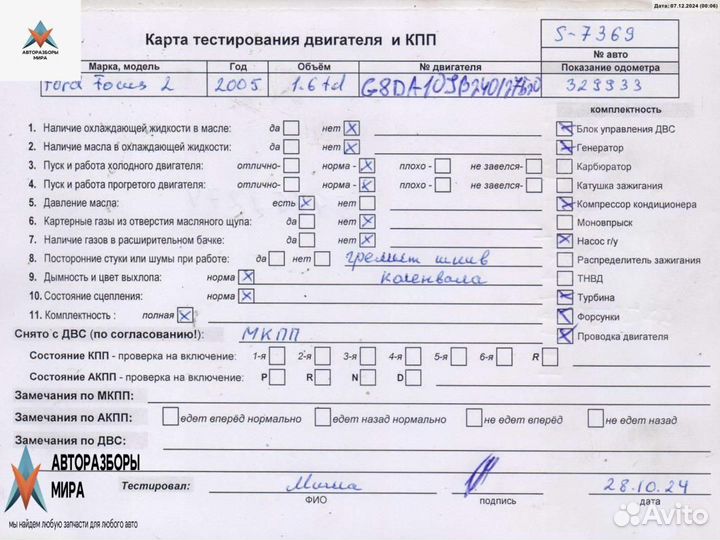 Дата: 07.12.2024 (00:06)
АВТОРАЗБОРЫ
МИРА
Карта тестирования двигателя и КПП
S-7369
№ авто
Марка, модель Год Объём № двигателя Показание одометра
Ford Focus 2 2005 1.6 td G8DA 329933
комплектность
1. Наличие охлаждающей жидкости в масле: да нет
Блок управления ДВС
2. Наличие масла в охлаждающей жидкости: да нет
Генератор
3. Пуск и работа холодного двигателя: отлично- норма - плохо - не завелся-
Карбюратор
4. Пуск и работа прогретого двигателя: отлично- норма - плохо - не завелся-
Катушка зажигания
5. Давление масла: есть нет
Компрессор кондиционера
6. Картерные газы из отверстия масляного щупа: да нет
Моновпрыск
7. Наличие газов в расширительном бачке: да нет
Насос г/у
8. Посторонние стуки или шумы при работе: да нет гремит шкив
Распределитель зажигания
9. Дымность и цвет выхлопа: норма коленвала
ТНВД
10. Состояние сцепления: норма
Турбина
11. Комплектность : полная
Форсунки
Снято с ДВС (по согласованию!): МКПП
Проводка двигателя
Состояние КПП - проверка на включение: 1-я 2-я 3-я 4-я 5-я 6-я R
Состояние АКПП - проверка на включение: P R N D
Замечания по МКПП:
Замечания по АКПП: едет вперёд нормально едет назад нормально не едет вперёд не едет назад
Замечания по ДВС:
АВТОРАЗБОРЫ
МИРА
мы найдем любую запчасти для любого авто
Тестировал: Миша 28.10.24
ФИО подпись дата
Avito